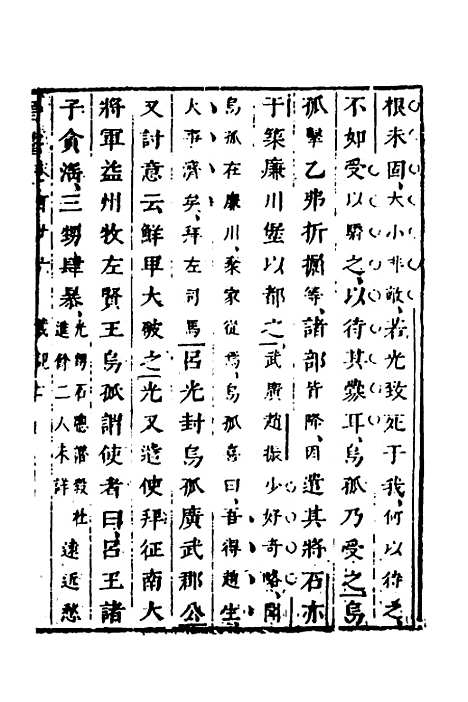 根未固、大小非敵、若光致死于我、何以待之、
不如受以驕之、以待其釁耳、烏孤乃受之烏
孤擊乙弗折掘等、諸部皆降、因遣其將石亦
于築廉川堡以都之、武廣趙振少好奇略、聞
烏孤在廉川、棄家從焉、烏孤喜曰、吾得趙生、
大事濟矣、拜左司馬呂光封烏孤廣武郡公
又討意云鮮卑大破之光又遣使拜征南大
將軍益州牧左賢王烏孤謂使者曰、呂王諸
子貪淫、三甥肆暴、光甥石聰潛殺杜進餘二人未詳遠近愁